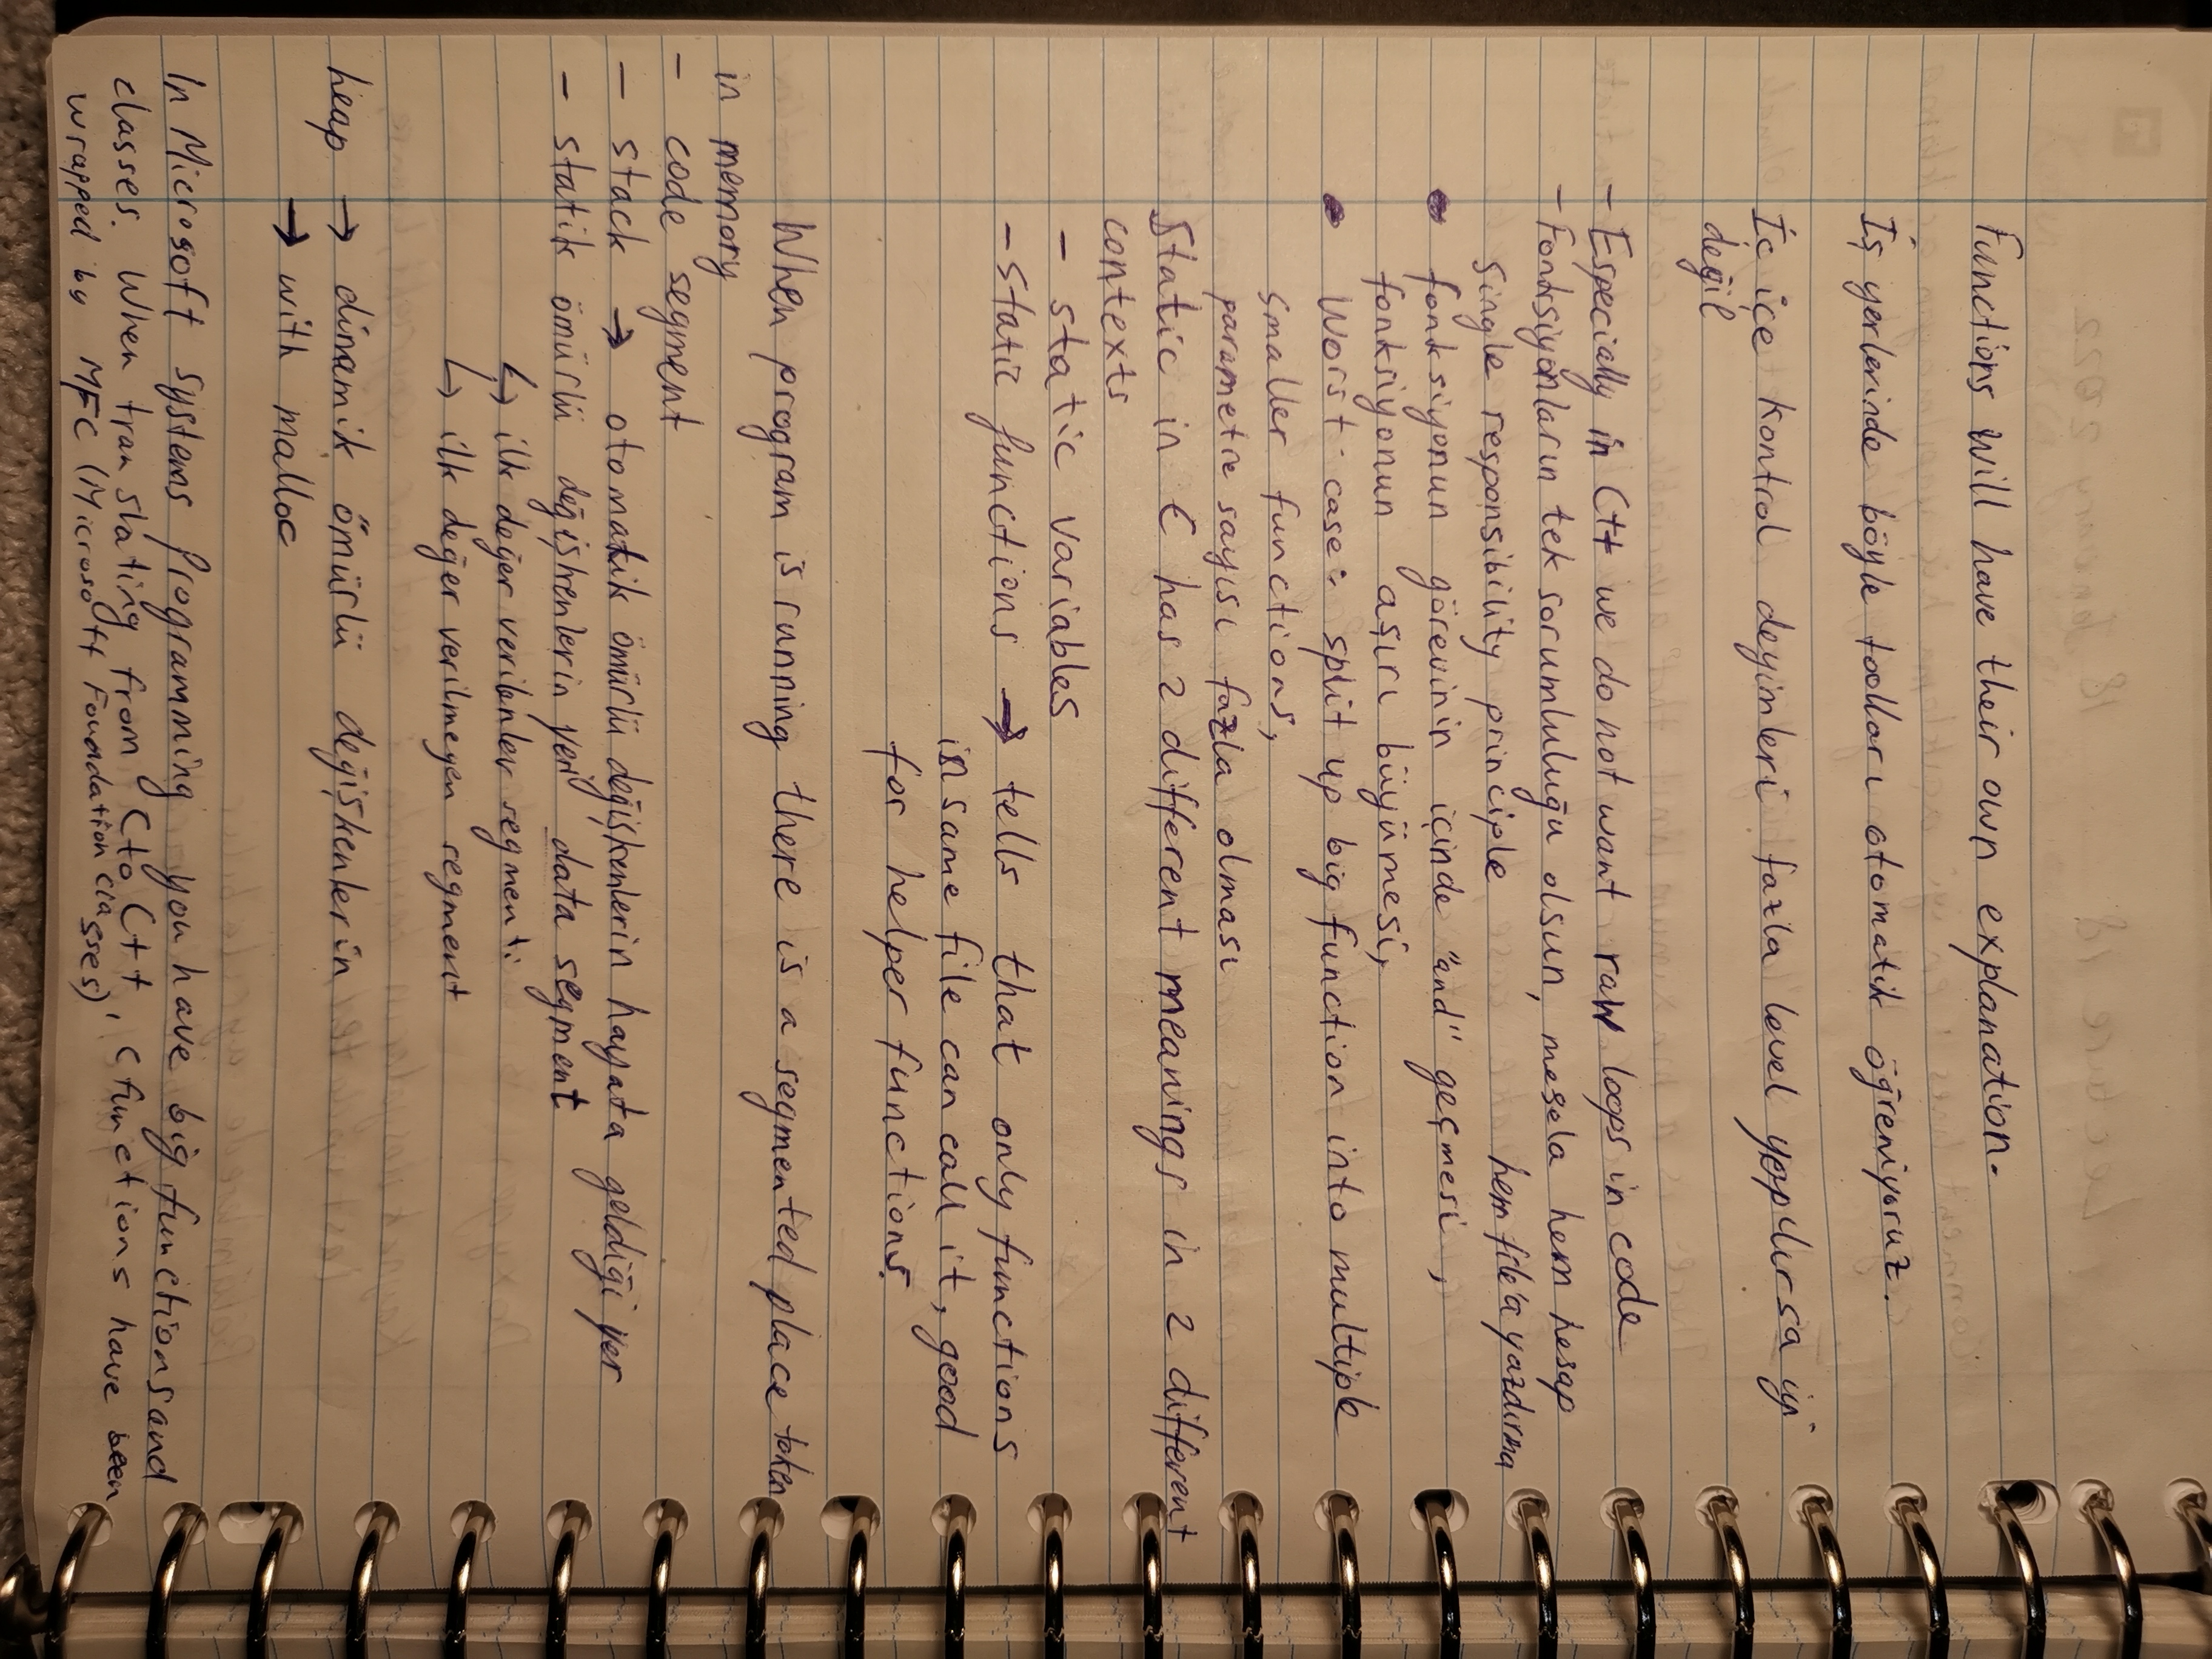 Functions will have their own explanation.
İş yerlerinde böyle toolları otomatik öğreniyoruz.
İç içe kontrol deyimleri fazla level yapılırsa iyi
değil
- Especially in C++ we do not want raw loops in code
- Fonksiyonların tek sorumluluğu olsun, mesela hem hesap
single responsibility principle hem file'a yazdırma
• fonksiyonun görevinin içinde "and" geçmesi,
fonksiyonun aşırı büyümesi,
• Worst case: split up big function into multiple
smaller functions,
parametre sayısı fazla olması
Static in C has 2 different meanings in 2 different
contexts
- static variables
- static functions → tells that only functions
in same file can call it, good
for helper functions.
When program is running there is a segmented place taken
in memory
- code segment
- stack → otomatik ömürlü değişkenlerin hayata geldiği yer
- statik ömürlü değişkenlerin yeri data segment
↳ ilk değer verilenler segmenti
↳ ilk değer verilmeyen segment
heap → dinamik ömürlü değişkenlerin
→ with malloc
In Microsoft Systems Programming you have big functions and
classes. When translating from C to C++, C functions have been
wrapped by MFC (Microsoft Foundation Classes)